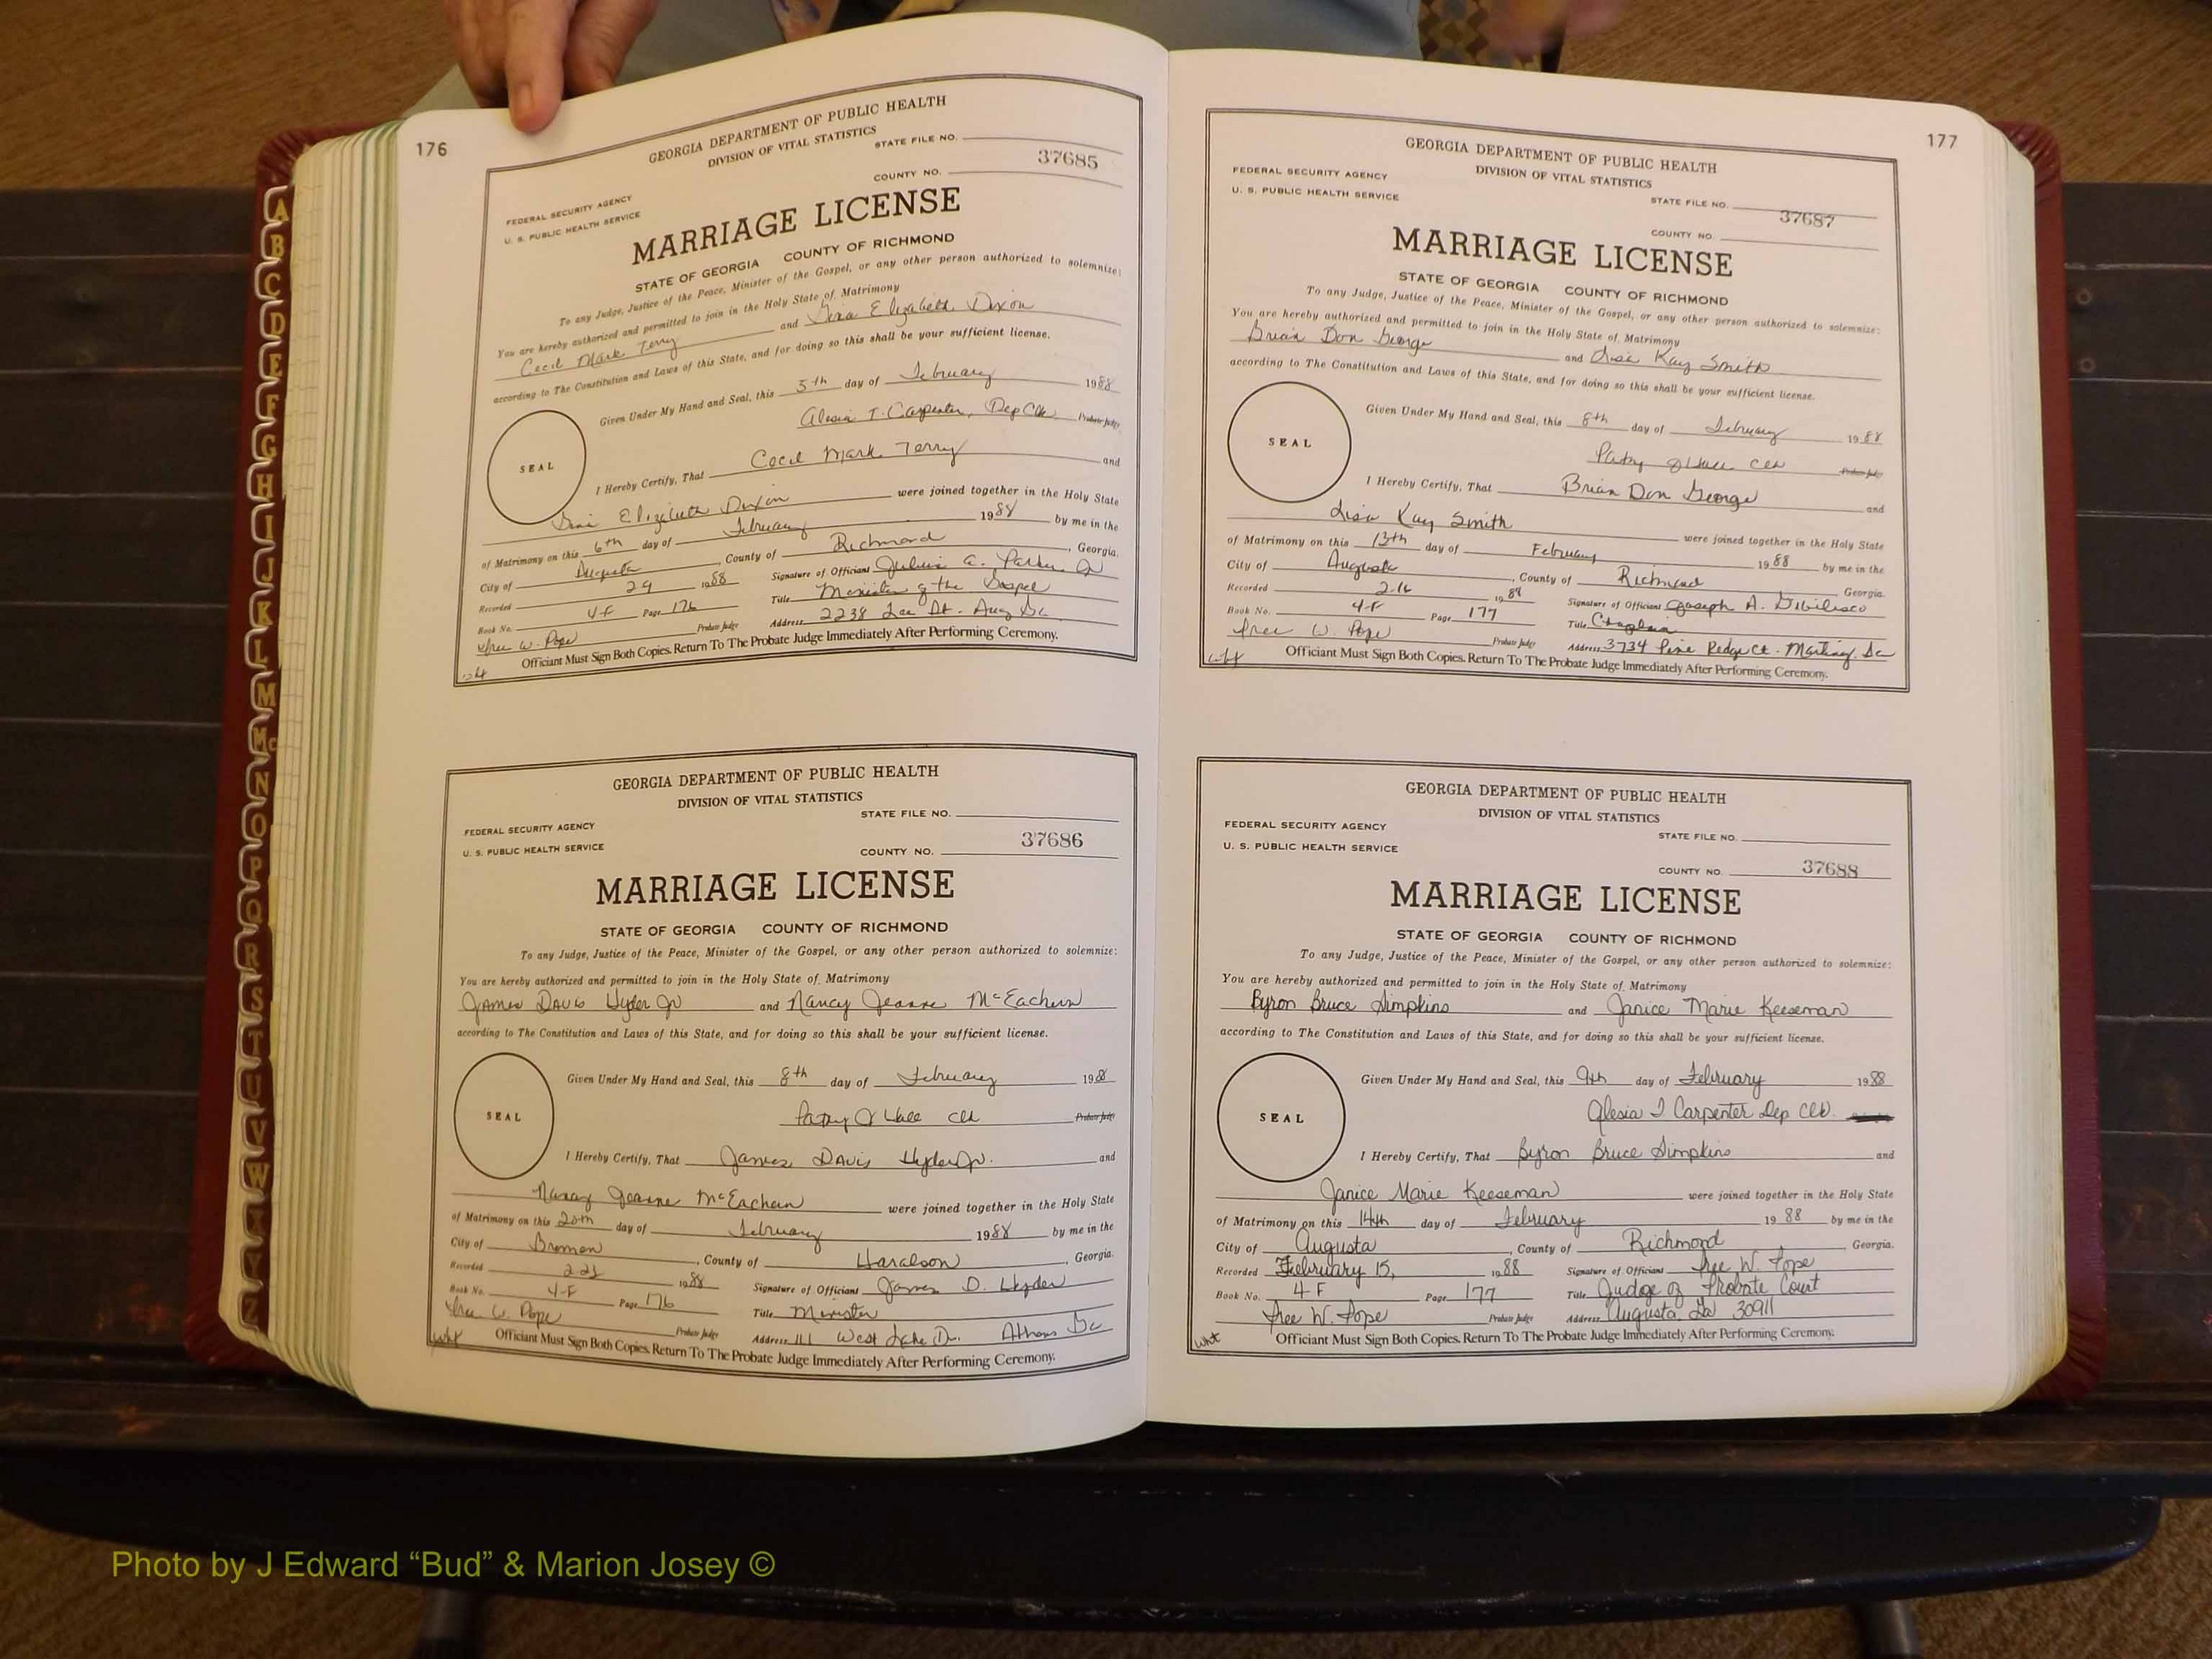 176
GEORGIA DEPARTMENT OF PUBLIC HEALTH
DIVISION OF VITAL STATISTICS
STATE FILE NO.
37685
COUNTY NO.
FEDERAL SECURITY AGENCY
U. S. PUBLIC HEALTH SERVICE
MARRIAGE LICENSE
STATE OF GEORGIA COUNTY OF RICHMOND
To any Judge, Justice of the Peace, Minister of the Gospel, or any other person authorized to solemnize:
You are hereby authorized and permitted to join in the Holy State of Matrimony
Cecil Mark Terry and Elizabeth Dixon
according to The Constitution and Laws of this State, and for doing so this shall be your sufficient license.
Given Under My Hand and Seal, this 5th day of February 1988
Alesia T. Carpenter, Dep Clk Probate Judge
SEAL
I Hereby Certify, That Cecil Mark Terry and
Elizabeth Dixon were joined together in the Holy State
of Matrimony on this 6th day of February 1988 by me in the
City of Augusta, County of Richmond, Georgia.
Recorded 29 1988 Signature of Officiant Julius A.
Book No. 4-F Page 176 Title Minister of the Gospel
W. Pope Probate Judge Address 2238 Aug Ga.
Officiant Must Sign Both Copies. Return To The Probate Judge Immediately After Performing Ceremony.
GEORGIA DEPARTMENT OF PUBLIC HEALTH
DIVISION OF VITAL STATISTICS
STATE FILE NO.
FEDERAL SECURITY AGENCY
U. S. PUBLIC HEALTH SERVICE
37686
COUNTY NO.
MARRIAGE LICENSE
STATE OF GEORGIA COUNTY OF RICHMOND
To any Judge, Justice of the Peace, Minister of the Gospel, or any other person authorized to solemnize:
You are hereby authorized and permitted to join in the Holy State of Matrimony
James Davis Hyder Jr and Nancy Jeanne McEachern
according to The Constitution and Laws of this State, and for doing so this shall be your sufficient license.
Given Under My Hand and Seal, this 8th day of February 198
Patsy Hall Clk Probate Judge
SEAL
I Hereby Certify, That James Davis Hyder Jr. and
Nancy Jeanne McEachern were joined together in the Holy State
of Matrimony on this 20th day of February 1988 by me in the
City of Bremen, County of Haralson, Georgia.
Recorded 1988 Signature of Officiant James D. Hyder
Book No. 4-F Page 176 Title Minister
W. Pope Probate Judge Address 111 West Lake Dr. Athens Ga
Officiant Must Sign Both Copies. Return To The Probate Judge Immediately After Performing Ceremony.
177
GEORGIA DEPARTMENT OF PUBLIC HEALTH
DIVISION OF VITAL STATISTICS
FEDERAL SECURITY AGENCY
U. S. PUBLIC HEALTH SERVICE
STATE FILE NO.
37687
COUNTY NO.
MARRIAGE LICENSE
STATE OF GEORGIA COUNTY OF RICHMOND
To any Judge, Justice of the Peace, Minister of the Gospel, or any other person authorized to solemnize:
You are hereby authorized and permitted to join in the Holy State of Matrimony
Brian Don George and Lisa Kay Smith
according to The Constitution and Laws of this State, and for doing so this shall be your sufficient license.
Given Under My Hand and Seal, this 8th day of February 1988
Patsy Hall Clk Probate Judge
SEAL
I Hereby Certify, That Brian Don George and
Lisa Kay Smith were joined together in the Holy State
of Matrimony on this 13th day of February 1988 by me in the
City of Augusta, County of Richmond Georgia.
Recorded 2-16 1988 Signature of Officiant Joseph A. Dibilisco
Book No. 4-F Page 177 Title Chaplain
W. Pope Probate Judge Address 3734 Pine Ridge Ct. Martinez, Ga
Officiant Must Sign Both Copies. Return To The Probate Judge Immediately After Performing Ceremony.
GEORGIA DEPARTMENT OF PUBLIC HEALTH
DIVISION OF VITAL STATISTICS
FEDERAL SECURITY AGENCY
U. S. PUBLIC HEALTH SERVICE
STATE FILE NO.
COUNTY NO. 37688
MARRIAGE LICENSE
STATE OF GEORGIA COUNTY OF RICHMOND
To any Judge, Justice of the Peace, Minister of the Gospel, or any other person authorized to solemnize:
You are hereby authorized and permitted to join in the Holy State of Matrimony
Byron Bruce Simpkins and Janice Marie Keeseman
according to The Constitution and Laws of this State, and for doing so this shall be your sufficient license.
Given Under My Hand and Seal, this 9th day of February 1988
Alesia T Carpenter Dep Clk.
SEAL
I Hereby Certify, That Byron Bruce Simpkins and
Janice Marie Keeseman were joined together in the Holy State
of Matrimony on this 14th day of February 1988 by me in the
City of Augusta, County of Richmond Georgia.
Recorded February 15, 1988 Signature of Officiant W. Pope
Book No. 4-F Page 177 Title Judge of Probate Court
W. Pope Probate Judge Address Augusta, Ga 30911
Officiant Must Sign Both Copies. Return To The Probate Judge Immediately After Performing Ceremony.
A
B
C
D
E
F
G
H
I
J
K
L
M
Mc
N
O
P
Q
R
S
T
U
V
W
X
Y
Z
Photo by J Edward “Bud” & Marion Josey ©